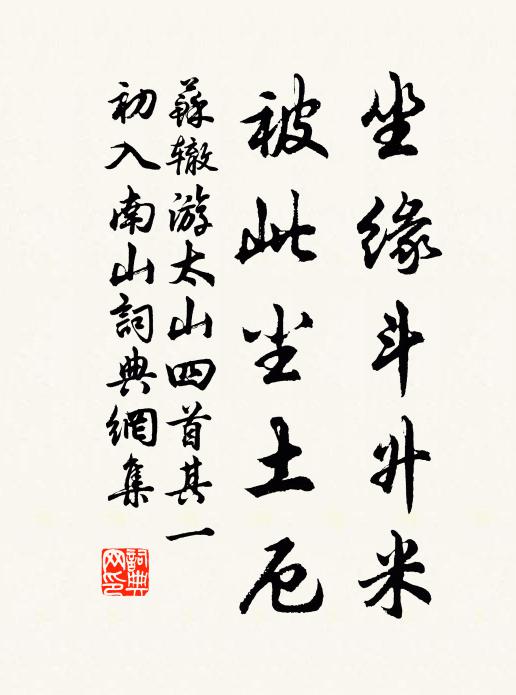 坐缘斗升米
被此尘土厄
蘇辙游太山四首其一
初入南山詞典網集
詞典网印